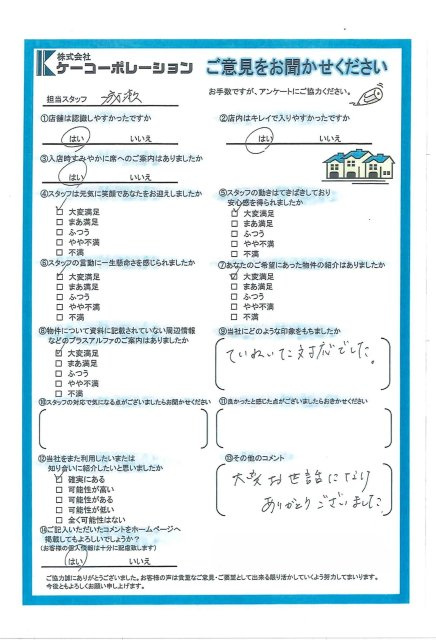 株式会社
ケーコーポレーション
ご意見をお聞かせください
担当スタッフ
お手数ですが、アンケートにご協力ください。
①店舗は認識しやすかったですか
はい いいえ
②店内はキレイで入りやすかったですか
はい いいえ
③入店時すみやかに席へのご案内はありましたか
はい いいえ
④スタッフは元気に笑顔であなたをお迎えしましたか
大変満足
まあ満足
ふつう
やや不満
不満
⑤スタッフの動きはてきぱきしており
安心感を得られましたか
大変満足
まあ満足
ふつう
やや不満
不満
⑥スタッフの言動に一生懸命さを感じられましたか
大変満足
まあ満足
ふつう
やや不満
不満
⑦あなたのご希望にあった物件の紹介はありましたか
大変満足
まあ満足
ふつう
やや不満
不満
⑧物件について資料に記載されていない周辺情報
などのプラスアルファのご案内はありましたか
大変満足
まあ満足
ふつう
やや不満
不満
⑨当社にどのような印象をもちましたか
ていねいな対応でした。
⑩スタッフの対応で気になる点がございましたらお聞かせください
⑪良かったと感じた点がございましたらおきかせください
⑫当社をまた利用したいまたは
知り合いに紹介したいと思いましたか
確実にある
可能性が高い
可能性がある
可能性が低い
全く可能性はない
⑬その他のコメント
大変お世話になり
ありがとうございました。
⑭ご記入いただいたコメントをホームページへ
掲載してもよろしいでしょうか?
(お客様の個人情報は十分に配慮致します)
はい いいえ
ご協力誠にありがとうございました。お客様の声は貴重なご意見・ご要望として出来る限り活かしていくよう努力してまいります。
今後ともよろしくお願い申し上げます。